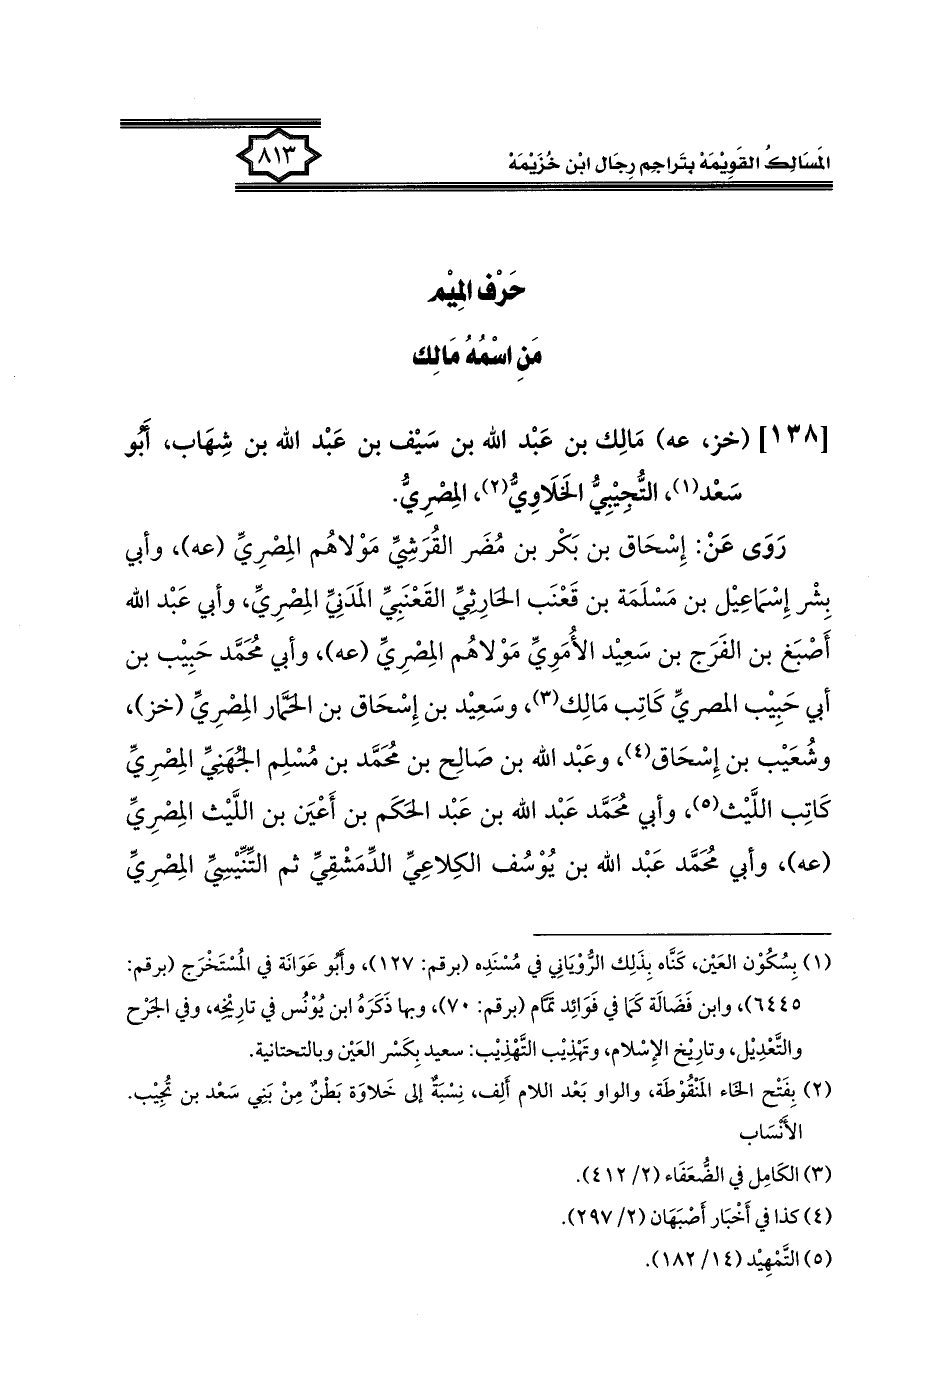 المَسَالِكُ القَوِيْمَهْ بِتَراجِمِ رِجَال ابْن خُزَيْمَهْ
٨١٣
حَرْف المِيْم
مَنِ اسْمُهُ مَالِك
[١٣٨] (خز، عه) مَالِك بن عَبْد الله بن سَيْف بن عَبْد الله بن شِهَاب، أَبُو
سَعْد(١)، التُّجِيْبِيُّ الخَلَاوِيُّ(٢)، المِصْرِيُّ.
رَوَى عَنْ: إِسْحَاق بن بَكْر بن مُضَر القُرَشِيِّ مَوْلاهُم المِصْرِيِّ (عه)، وأبي
بِشْر إِسْمَاعِيْل بن مَسْلَمَة بن قَعْنَب الحَارِثِيِّ القَعْنَبِيِّ المَدَنِيِّ المِصْرِيِّ، وأبي عَبْد الله
أَصْبَغ بن الفَرَج بن سَعِيْد الأُمَوِيِّ مَوْلاهُم المِصْرِيِّ (عه)، وأبي مُحَمَّد حَبِيْب بن
أبي حَبِيْب المصريِّ كَاتِب مَالِك(٣)، وسَعِيْد بن إِسْحَاق بن الحَمَّار المِصْرِيِّ (خز)،
وشُعَيْب بن إِسْحَاق(٤)، وعَبْد الله بن صَالِح بن مُحَمَّد بن مُسْلِم الجُهَنِيِّ المِصْرِيِّ
كَاتِب اللَّيْث(٥)، وأبي مُحَمَّد عَبْد الله بن عَبْد الحَكَم بن أَعْيَن بن اللَّيْث المِصْرِيِّ
(عه)، وأبي مُحَمَّد عَبْد الله بن يُوْسُف الكِلاعِيِّ الدِّمَشْقِيِّ ثم التِّنِّيْسِيِّ المِصْرِيِّ
(١) بِسُكُوْن العَيْن، كَنَّاه بِذَلِك الرُّوْيَاني في مُسْنَدِه (برقم: ١٢٧)، وأَبُو عَوَانَة في المُسْتَخْرَج (برقم:
٦٤٤٥)، وابن فَضَالَة كَمَا في فَوَائِد تَمَّام (برقم: ٧٠)، وبها ذَكَرَهُ ابن يُوْنُس في تاريْخِه، وفي الجَرْح
والتَّعْدِيْل، وتاريْخ الإِسْلام، وتَهْذِيْب التَّهْذِيْب: سعيد بِكَسْر العَيْن وبالتحتانية.
(٢) بِفَتْح الخَاء المَنْقُوْطَة، والواو بَعْد اللام أَلِف، نِسْبَةٌ إلى خَلاوَة بَطْنٌ مِنْ بَنِي سَعْد بن تُجِيْب.
الأَنْسَاب
(٣) الكَامِل في الضُّعَفَاء (٢/ ٤١٢).
(٤) كذا في أَخْبَار أَصْبَهَان (٢/ ٢٩٧).
(٥) التَّمْهِيْد (١٤/ ١٨٢).